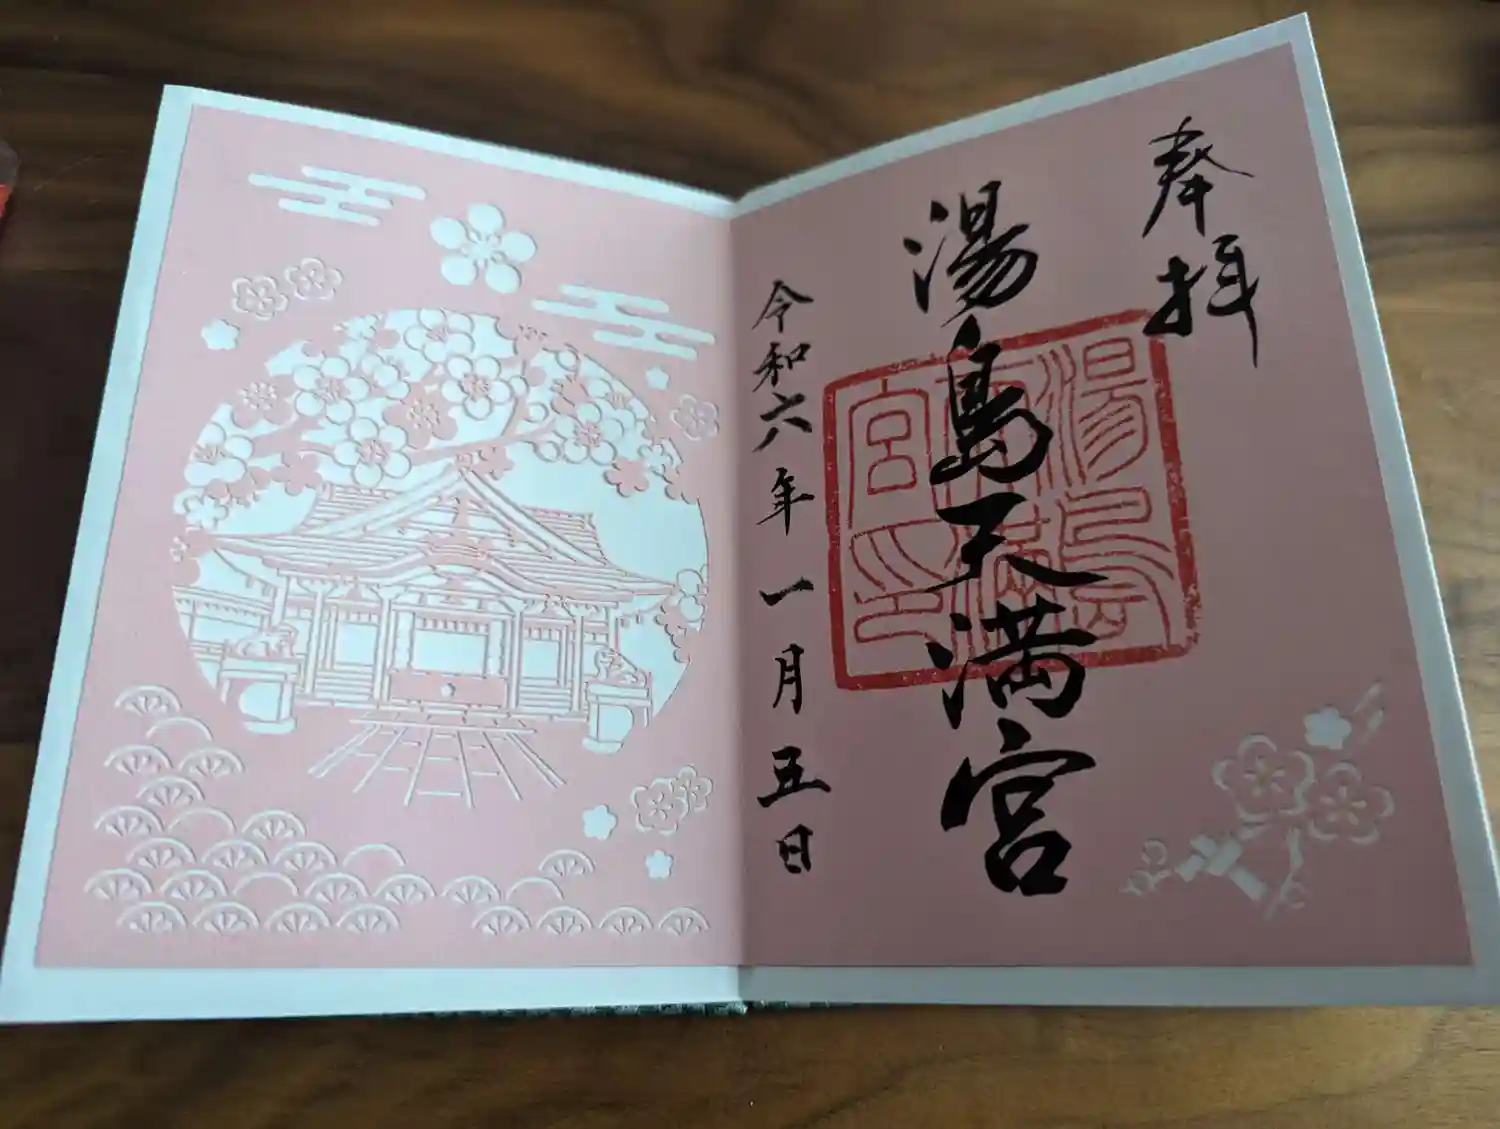 奉拝
湯島天満宮
湯島天満宮印
令和六年一月五日